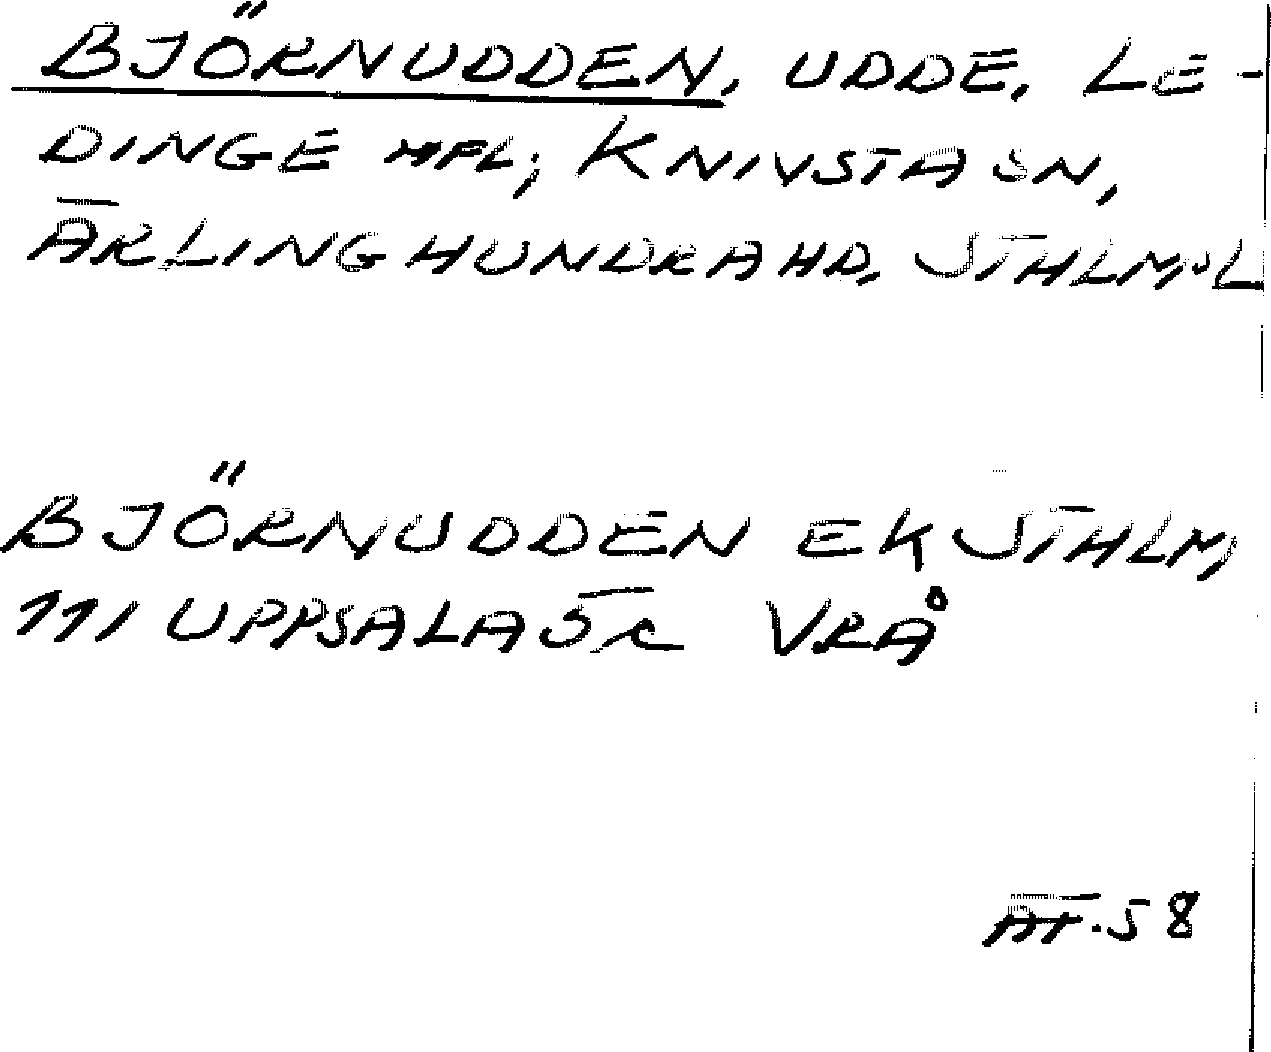 BJÖRNUDDEN, UDDE, LE-
DINGE HFL, KNIVSTA SN,
ÄRLINGHUNDRA HD, STHLMS L
BJÖRNUDDEN EK STHLM,
111 UPPSALA 5c VRÅ
AT.58